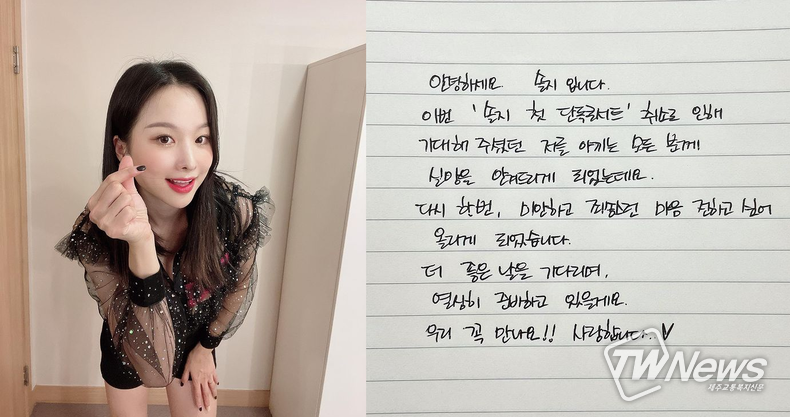 안녕하세요 솔지 입니다.
이번 '솔지 첫 단독콘서트' 취소로 인해
기대해 주셨던 저를 아끼는 모든 분께
실망을 안겨드리게 되었는데요.
다시 한번, 미안하고 죄송한 마음 전하고 싶어
올리게 되었습니다.
더 좋은 날을 기다리며,
열심히 준비하고 있을게요.
우리 꼭 만나요!! 사랑합니다.♥
TWNews
제주교통복지신문